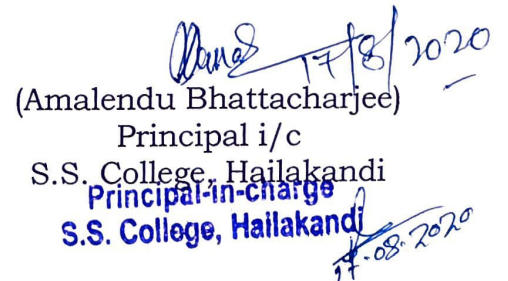 17/8/2020
(Amalendu Bhattacharjee)
Principal i/c
S.S. College, Hailakandi
Principal-in-charge
S.S. College, Hailakandi
17.08.2020